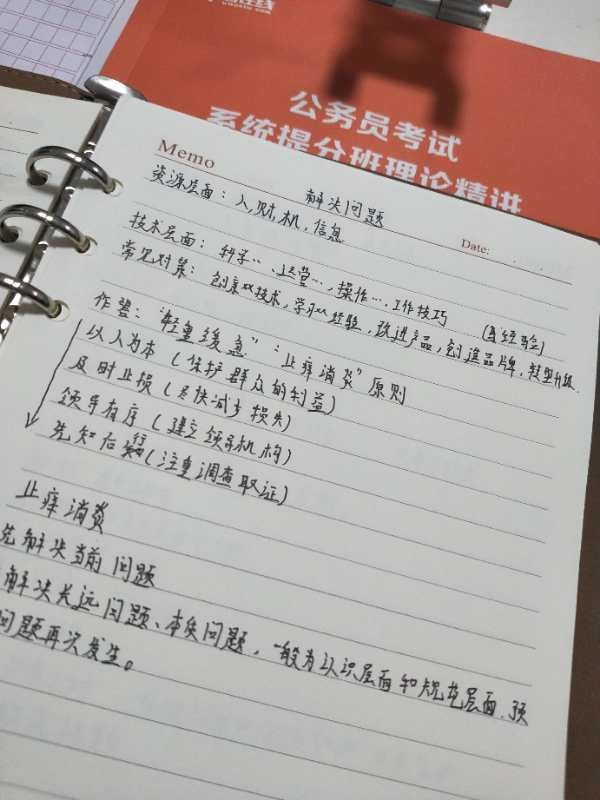 公务员考试
系统提分班理论精讲
Memo
解决问题
Date:
资源层面：人,财,机,信息
技术层面：科学…、运营…，操作…,工作技巧
常见对策：创新以技术，学习以经验，改进产品，创造品牌，转型升级.
作答："轻重缓急"："止痒消炎"原则
以人为本（保护群众的利益）
及时止损（尽快减少损失）
领导有序（建立领导机构）
先知后行（注重调查取证）
止痒消炎
先解决当前问题
解决长远问题、本质问题，一般为认识层面和规范层面.预
问题再次发生。